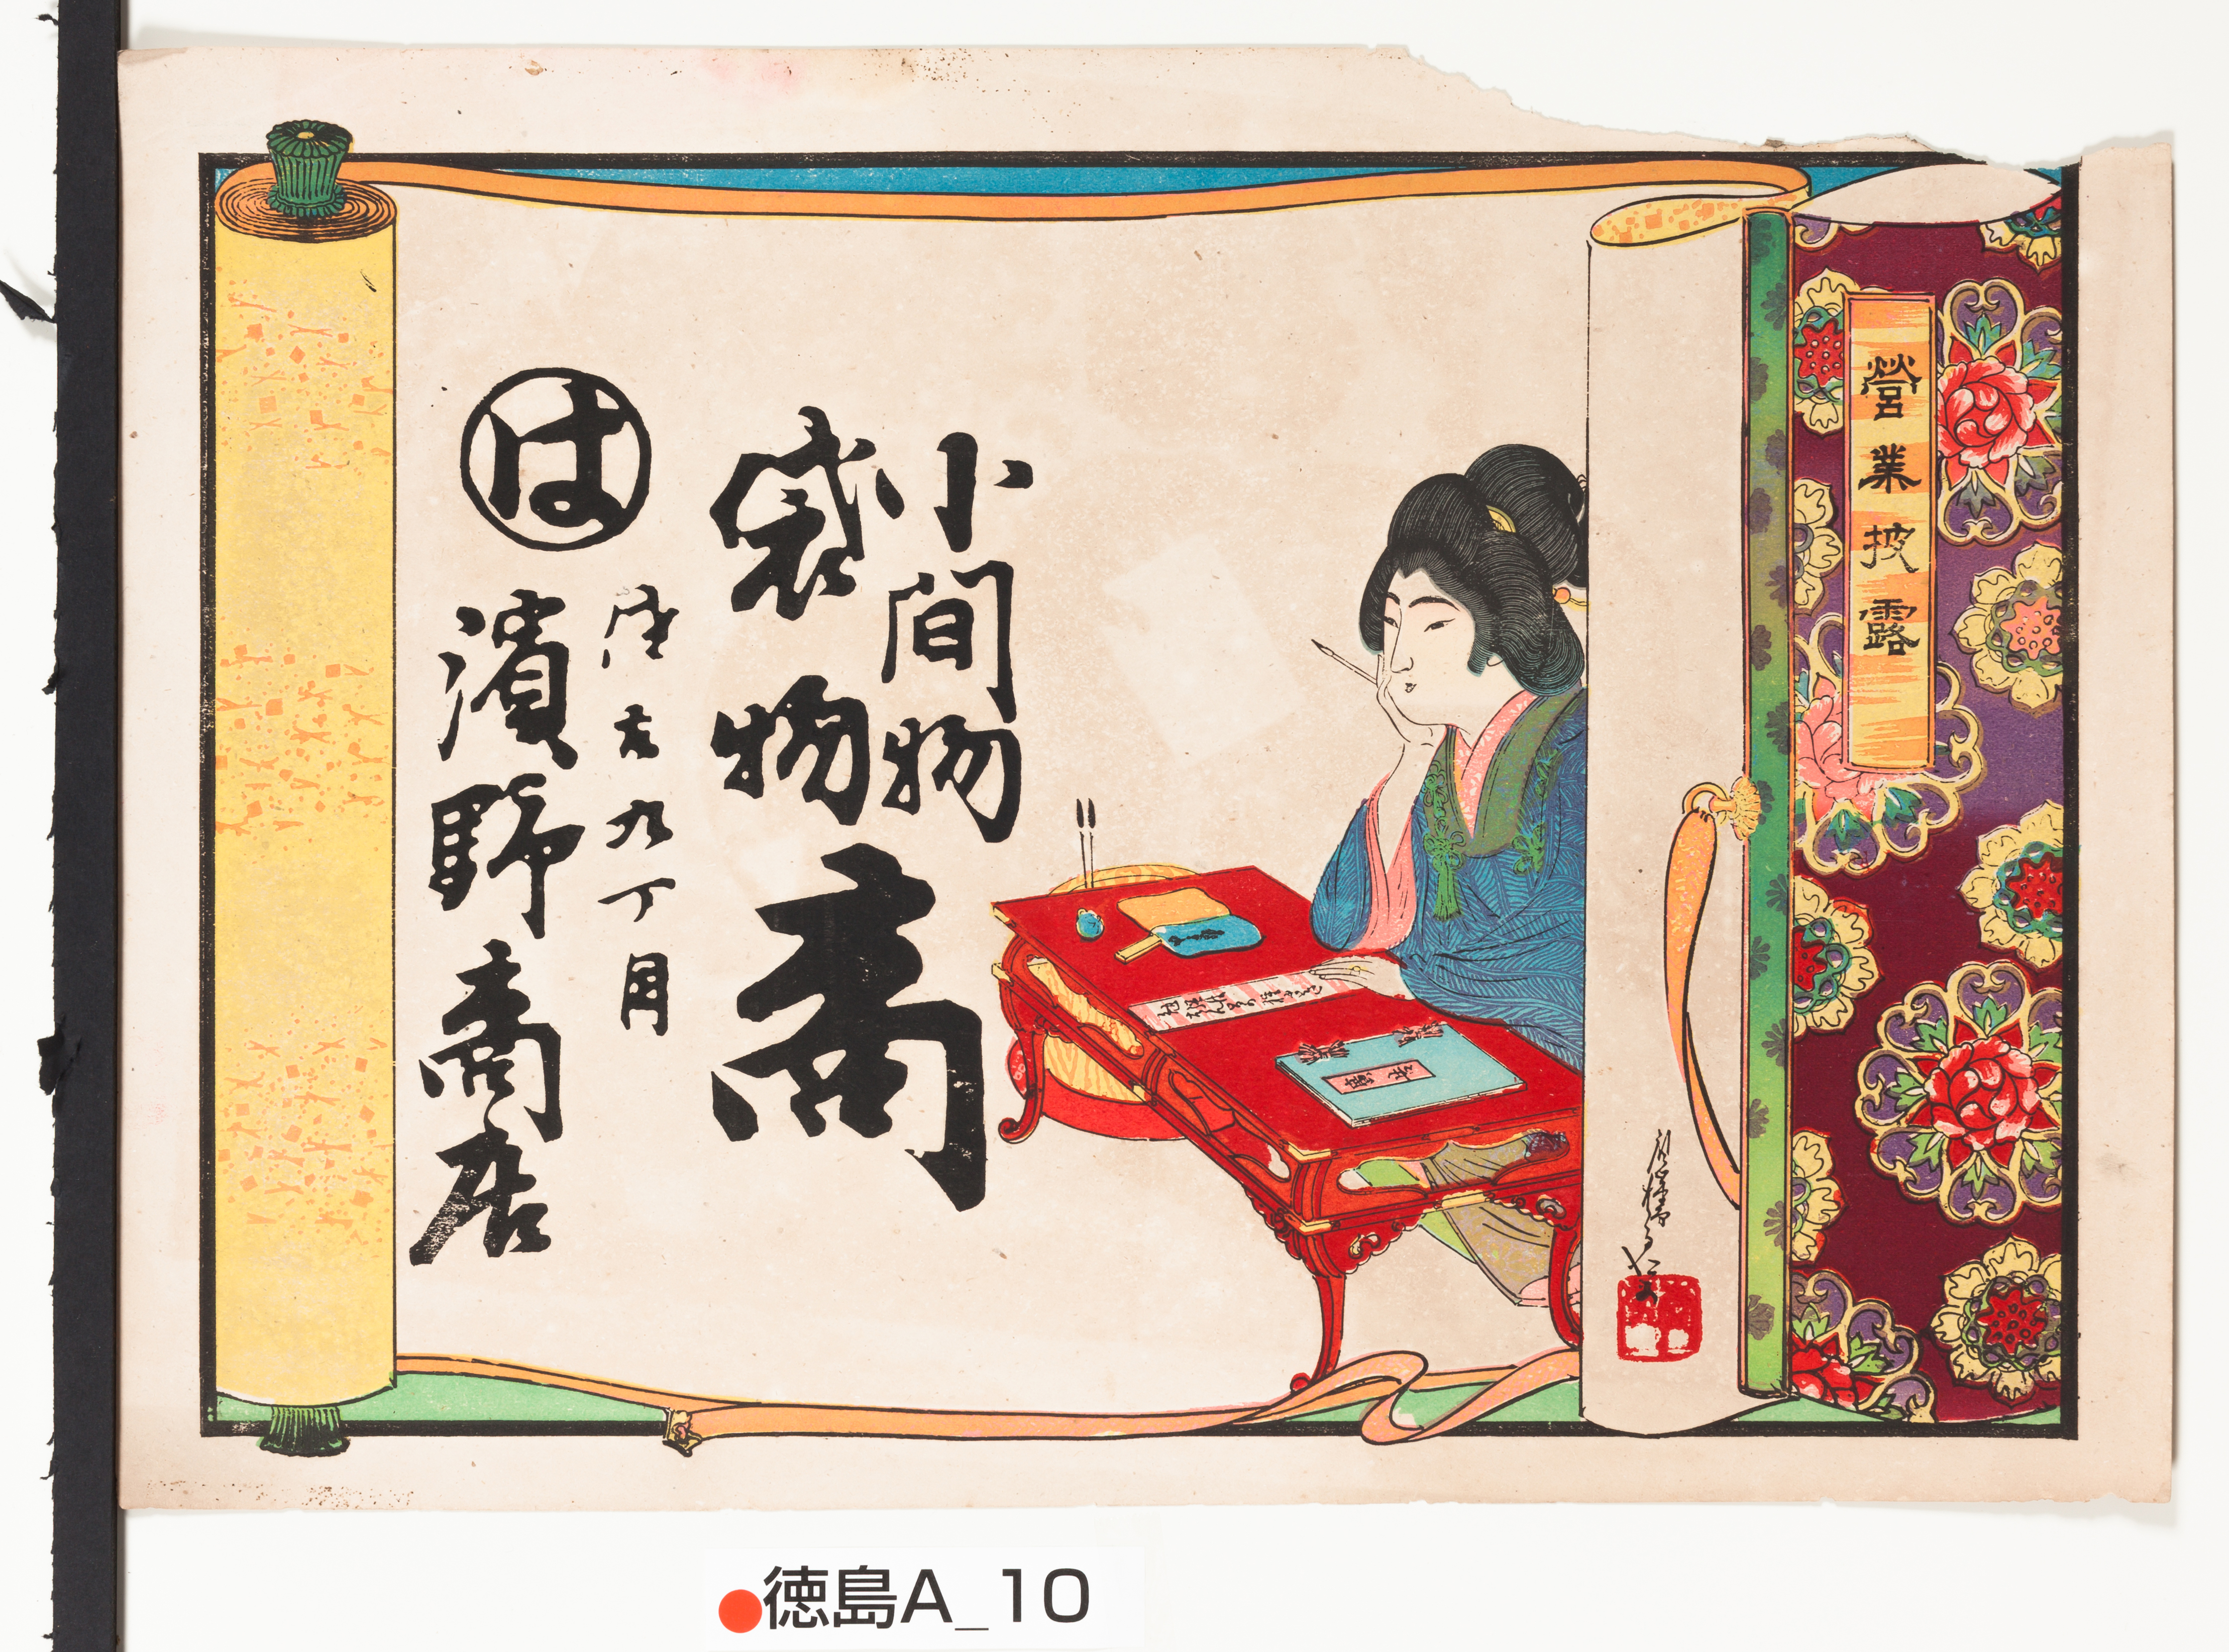 營業披露
小間物
袋物
商
佐古九丁目
は
濱野商店
徳島A_10